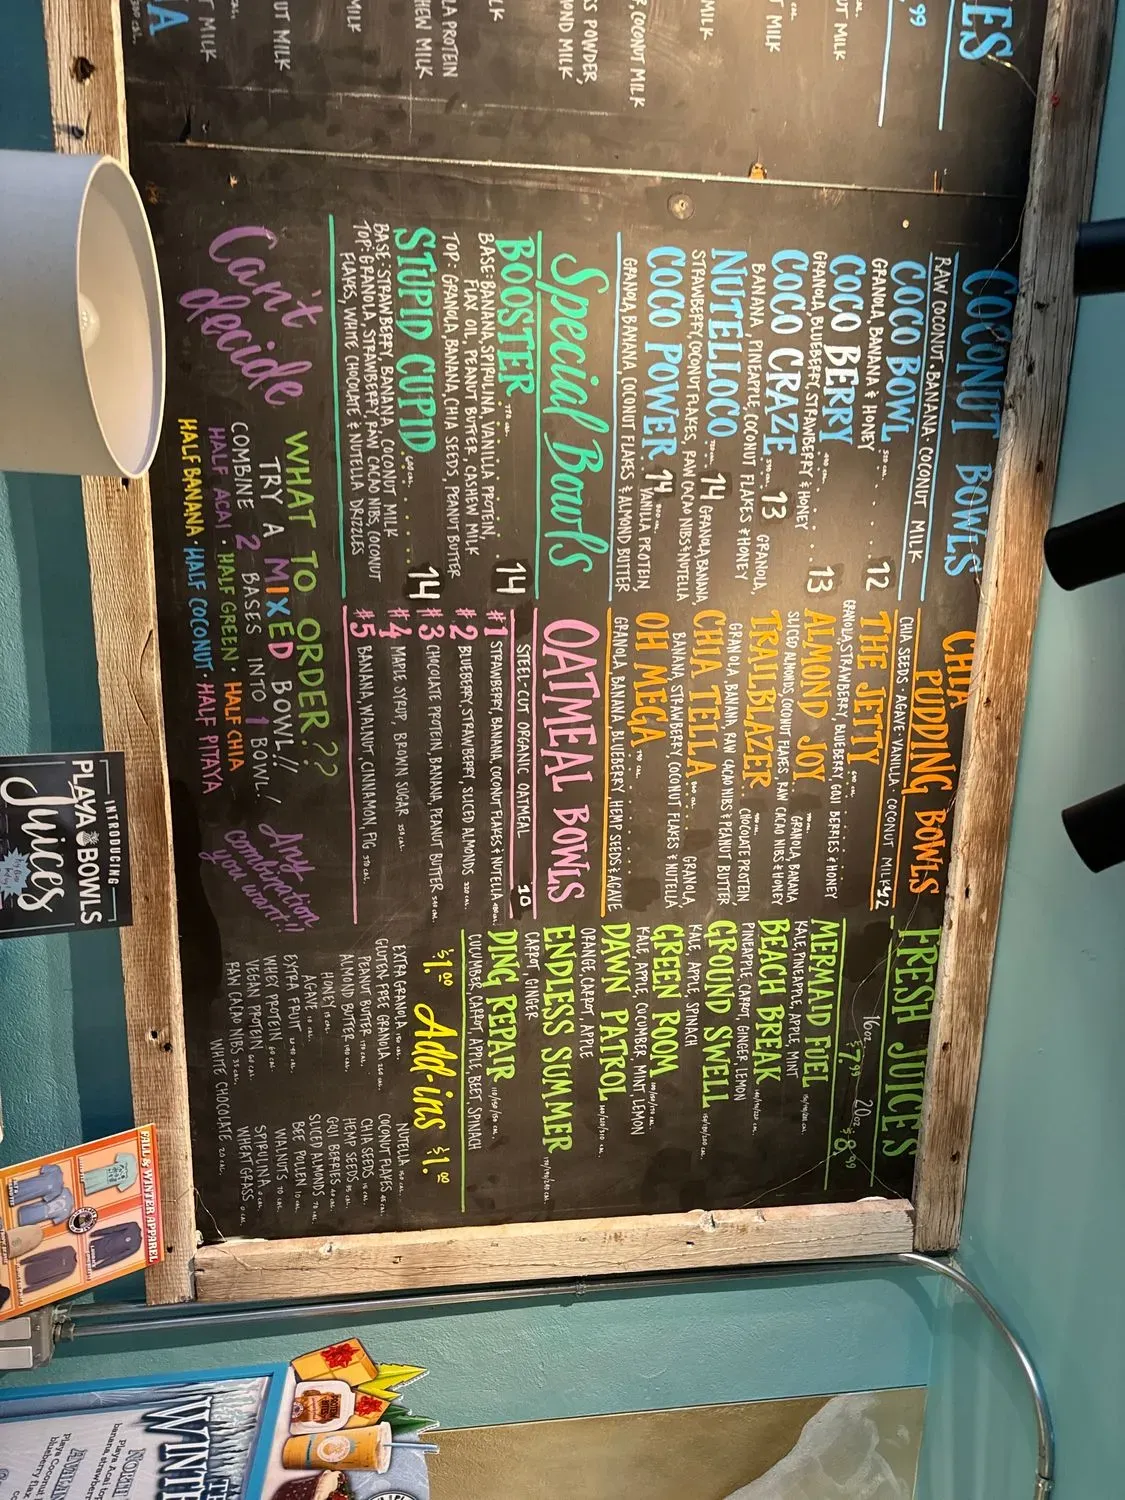 ES
99
UT MILK
T MILK
MILK
R, COCONUT MILK
SS POWDER,
OND MILK
LK
LA PROTEIN
HEW MILK
MILK
UT MILK
T MILK
A
COCONUT BOWLS
RAW COCONUT · BANANA · COCONUT MILK
COCO BOWL
GRANOLA, BANANA & HONEY . . . . 12
COCO BERRY
GRANOLA, BLUEBERRY, STRAWBERRY & HONEY . . . 13
COCO CRAZE 13 GRANOLA,
BANANA, PINEAPPLE, COCONUT FLAKES & HONEY
NUTELLOCO 14 GRANOLA, BANANA,
STRAWBERRY, COCONUT FLAKES, RAW CACAO NIBS & NUTELLA
COCO POWER 14 VANILLA PROTEIN,
GRANOLA, BANANA, COCONUT FLAKES & ALMOND BUTTER
Special Bowls
BOOSTER . . . . . 14
BASE: BANANA, SPIRULINA, VANILLA PROTEIN,
FLAX OIL, PEANUT BUTTER, CASHEW MILK
TOP: GRANOLA, BANANA, CHIA SEEDS, PEANUT BUTTER
STUPID CUPID . . . . . 14
BASE: STRAWBERRY, BANANA, COCONUT MILK
TOP: GRANOLA, STRAWBERRY, RAW CACAO NIBS, COCONUT
FLAKES, WHITE CHOCOLATE & NUTELLA DRIZZLES
CHIA
PUDDING BOWLS
CHIA SEEDS · AGAVE · VANILLA · COCONUT MILK 12
THE JETTY
GRANOLA, STRAWBERRY, BLUEBERRY, GOJI BERRIES & HONEY
ALMOND JOY GRANOLA, BANANA
SLICED ALMONDS, COCONUT FLAKES, RAW CACAO NIBS & HONEY
TRAILBLAZER . . CHOCOLATE PROTEIN
GRANOLA, BANANA, RAW CACAO NIBS & PEANUT BUTTER
CHIA TELLA GRANOLA,
BANANA, STRAWBERRY, COCONUT FLAKES & NUTELLA
OH MEGA
GRANOLA, BANANA, BLUEBERRY, HEMP SEEDS & AGAVE
OATMEAL BOWLS
STEEL-CUT ORGANIC OATMEAL 10
#1 STRAWBERRY, BANANA, COCONUT FLAKES & NUTELLA
#2 BLUEBERRY, STRAWBERRY, SLICED ALMONDS
#3 CHOCOLATE PROTEIN, BANANA, PEANUT BUTTER
#4 MAPLE SYRUP, BROWN SUGAR
#5 BANANA, WALNUT, CINNAMON, FIG
FRESH JUICES
16oz. $7.99 20oz. $8.99
MERMAID FUEL
KALE, PINEAPPLE, APPLE, MINT
BEACH BREAK
PINEAPPLE, CARROT, GINGER, LEMON
GROUND SWELL
KALE, APPLE, SPINACH
GREEN ROOM
KALE, APPLE, CUCUMBER, MINT, LEMON
DAWN PATROL
ORANGE, CARROT, APPLE
ENDLESS SUMMER
CARROT, GINGER
DNG REPAIR
CUCUMBER, CARROT, APPLE, BEET, SPINACH
$1.00 Add-ins $1.00
EXTRA GRANOLA
GLUTEN FREE GRANOLA
PEANUT BUTTER
ALMOND BUTTER
HONEY
AGAVE
EXTRA FRUIT
WHEY PROTEIN
VEGAN PROTEIN
RAW CACAO NIBS
WHITE CHOCOLATE
NUTELLA
COCONUT FLAKES
CHIA SEEDS
HEMP SEEDS
GOJI BERRIES
SLICED ALMONDS
BEE POLLEN
WALNUTS
SPIRULINA
WHEAT GRASS
Can't
decide
WHAT TO ORDER??
TRY A MIXED BOWL!!
COMBINE 2 BASES INTO 1 BOWL!
HALF ACAI · HALF GREEN · HALF CHIA
HALF BANANA · HALF COCONUT · HALF PITAYA
Any
combination
you want!!
INTRODUCING
PLAYA BOWLS
Juices
FALL & WINTER APPAREL